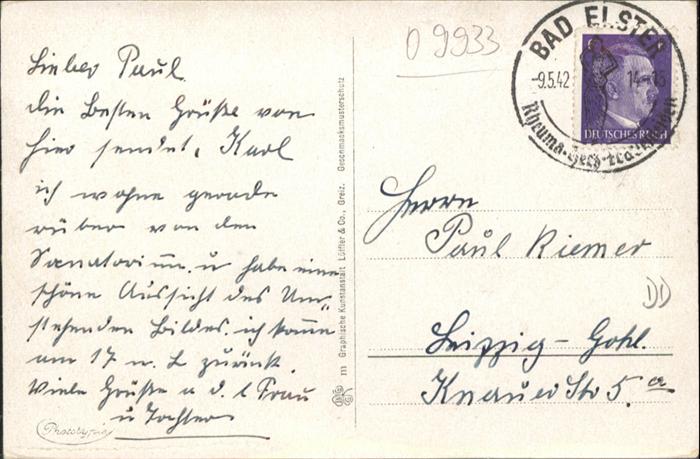 Lieber Paul
die Besten Grüße von
hier sendet. Karl
ich wohne gerade
rüber von den
Sanatorium. u habe eine
schöne Aussicht des Um-
stehenden Bildes. ich komme
am 17 n. L zurück.
Viele Grüße a. d. l Frau
u Tochter
Photobypia
111 Graphische Kunstanstalt Löffler & Co., Greiz. Geschmacksmusterschutz
D 9933
BAD ELSTER
-9.5.42
DEUTSCHES REICH
Herrn
Paul Riemer
Leipzig-Gohl.
Str 5. a
DD